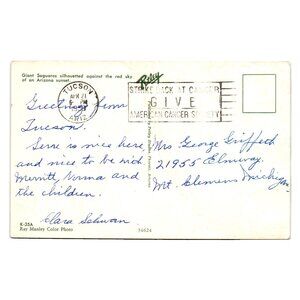 Giant Saguaros silhouetted against the red sky
of an Arizona sunset
TUCSON
ARIZ
Petley
STRIKE BACK AT CANCER
GIVE
AMERICAN CANCER SOCIETY
Greetings from
Tucson.
Serre is nice here,
and nice to be wid
Merritt Norma and
the children.
Clara Schwan
Mrs George Griffeth
21955 Elmway
Mt Clemens Michigan
K-35A
Ray Manley Color Photo
34624